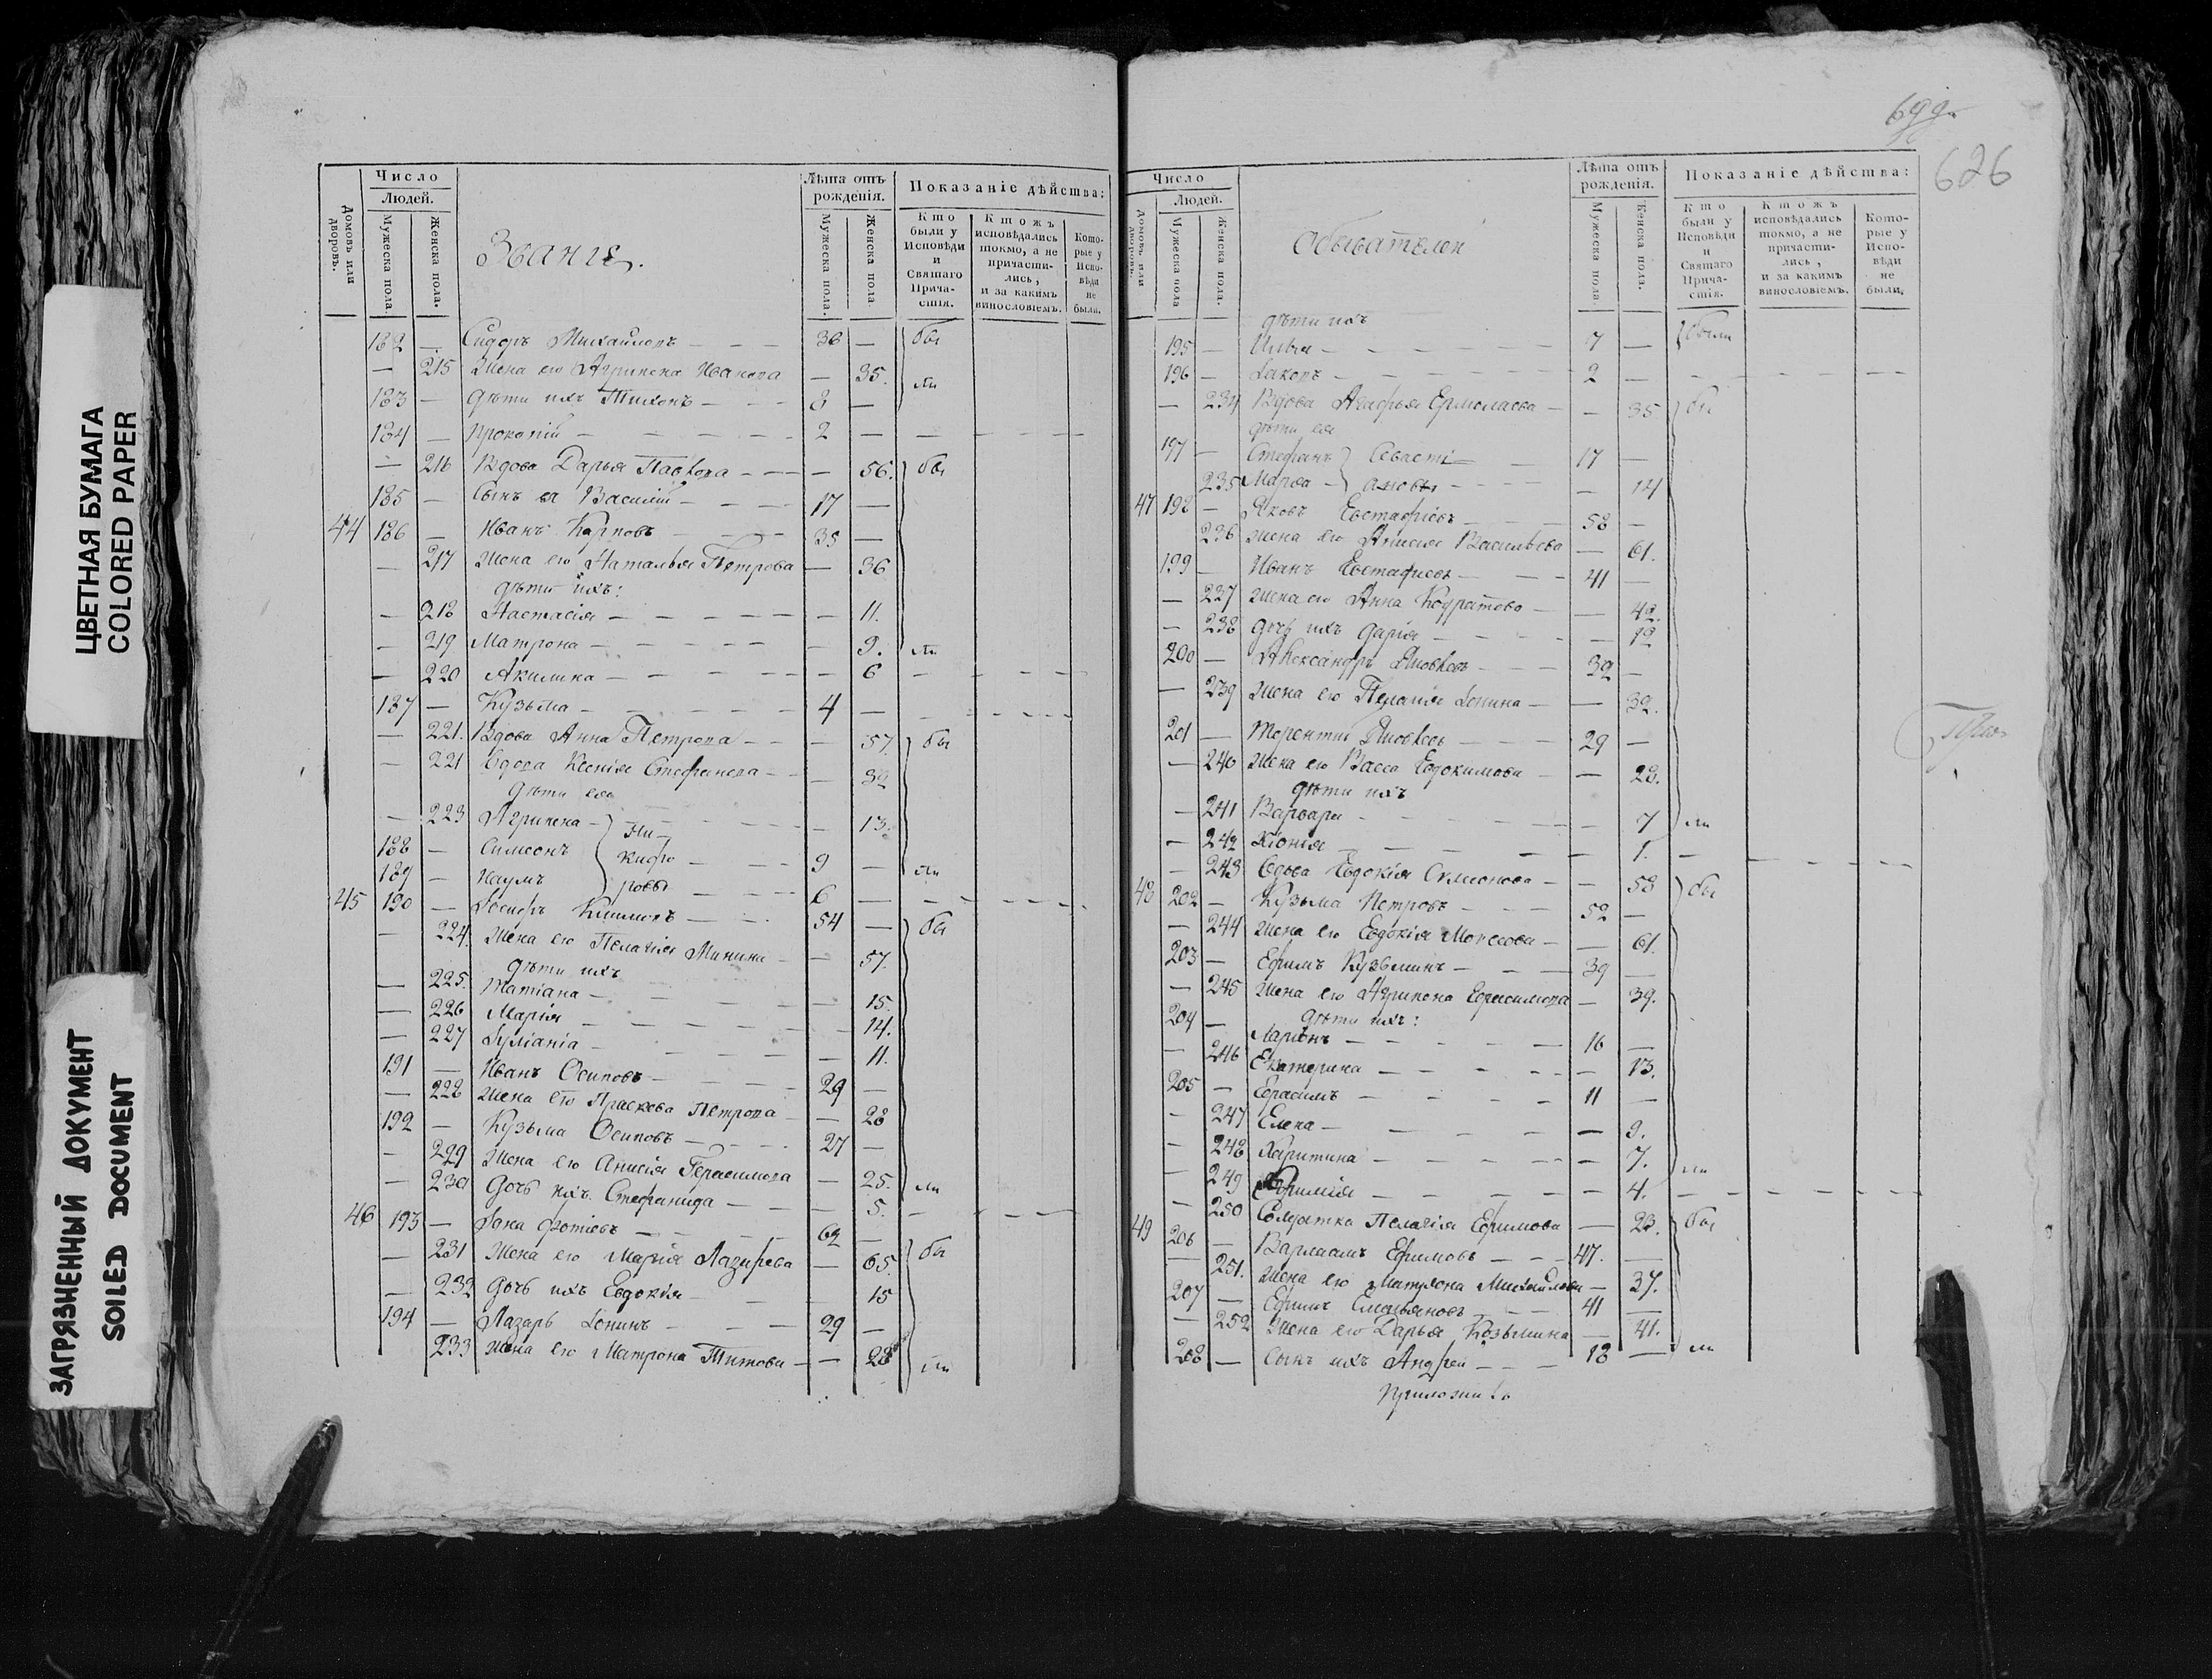 ЦВЕТНАЯ БУМАГА
COLORED PAPER
ЗАГРЯЗНЕННЫЙ ДОКУМЕНТ
SOILED DOCUMENT
Число
Людей.
Домовъ или дворовъ.
Мужеска пола
Женска пола.
Званіе.
Лѣта отъ рожденія.
Мужеска пола.
Женска пола.
Показаніе дѣйства:
Кто были у Исповѣди и Святаго Прича-стія.
Ктожъ исповѣдались токмо, а не причасти-лись, и за какимъ винословіемъ.
Кото-рые у Испо-вѣди не были.
182 — Сидоръ Михайловъ — — — 36 — бы
— 215 Жена его Агрипена Иванова — 35. ли
183 — дѣти ихъ Тихонъ — — — 8 —
184 — Прокопій — — — — 2 — — — — —
— 216 Вдова Дарья Павлова — — — — 56. бы
185 — Сынъ ея Василій — — — 17 —
44 186 — Иванъ Карповъ — — — 35 —
— 217 Жена его Наталья Петрова — 36
дѣти ихъ:
— 218 Настасія — — — — — 11.
— 219 Матрона — — — — — 9. ли
— 220 Акилина — — — — — 6 — — — —
187 — Кузьма — — — — — 4 — — — — —
— 221. Вдова Анна Петрова — — — 57. бы
— 221 Вдова Ксенія Стефанова — — 32
дѣти ея
— 223 Агрипена — — — — 13.
188 — Симеонъ Ни-кифо-ровы — — 9 — ли
189 — Наумъ — — — 6 — — — — —
45 190 — Іосифъ Климовъ — — — 54 — бы
— 224. Жена его Пелагія Минина — — 57.
дѣти ихъ
— 225. Татіана — — — — — 15.
— 226 Марія — — — — — 14.
— 227 Іуліанія — — — — — 11.
191 — Иванъ Осиповъ — — — 29 —
— 228 Жена его Праскева Петрова — — 28
192 — Кузьма Осиповъ — — — 27 —
— 229 Жена его Анисія Герасимова — 25. ли
— 230 Дочь ихъ Стефанида — — — 5. — — —
46 193 — Іона Фотіевъ — — — 62 —
— 231 Жена его Марія Лазарева — 65. бы
— 232 Дочь ихъ Евдокія — — — 15
194 — Лазарь Іонинъ — — — 29 —
233 Жена его Матрона Титова — — 28 ли
699
626
Число
Людей.
Домовъ или дворовъ.
Мужеска пола
Женска пола.
обывателей
Лѣта отъ рожденія.
Мужеска пола.
Женска пола.
Показаніе дѣйства:
Кто были у Исповѣди и Святаго Прича-стія.
Ктожъ исповѣдались токмо, а не причасти-лись, и за какимъ винословіемъ.
Кото-рые у Испо-вѣди не были.
дѣти ихъ
195 — Илья — — — — — 7 — были
196 — Іаковъ — — — — — 2 — — — — —
— 234 Вдова Агафья Ермолаева — — 35 бы
дѣти ея
197 — Стефанъ Севасті- — — 17 —
235 Марѳа ановы — — — — 14
47 198 — Яковъ Евстафіевъ — — 58 —
236 Жена его Анисія Васильева — 61.
199 — Иванъ Евстафіевъ — — — 41 —
— 237 Жена его Анна Кодратова — — 42.
— 238 дочь ихъ Дарія — — — — 12
200 — Александръ Яковлевъ — — — 32 —
— 239 Жена его Пелагія Іонина — — 32.
201 — Терентій Яковлевъ — — — 29 —
— 240 Жена его Васса Евдокимова — — 28.
дѣти ихъ
— 241 Варвара — — — — — 7 ли
— 242 Хіонія — — — — — 1. — — — —
— 243 Вдова Евдокія Симеонова — — 58 бы
48 202 — Кузьма Петровъ — — — 52 —
— 244 Жена его Евдокія Моисеева — — 61.
203 — Ефимъ Кузьминъ — — — 39 —
— 245 Жена его Агрипена Герасимова — 39.
дѣти ихъ:
204 — Ларіонъ — — — — — 16 —
— 246 Екатерина — — — — — 13.
205 — Герасимъ — — — — 11 —
— 247 Елена — — — — — 9.
— 248 Харитина — — — — — 7. ли
— 249 Ефимія — — — — — 4. — — — —
— 250 Солдатка Пелагія Ефимова — 23. бы
49 206 — Варлаамъ Ефимовъ — — — 47. —
— 251. Жена его Матрона Михайлова — 37.
207 — Ефимъ Емельяновъ — — 41 —
— 252 Жена его Дарья Козьмина — 41.
208 — Сынъ ихъ Андрей — — — 18 — ли